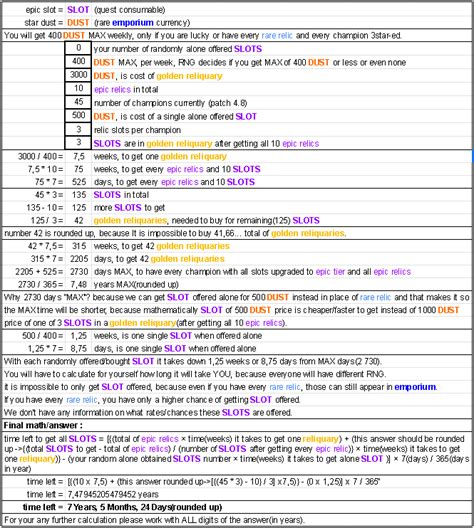 epic slot = SLOT (quest consumable)
star dust = DUST (rare emporium currency)
You will get 400 DUST MAX weekly, only if you are lucky or have every rare relic and every champion 3star-ed.
0 your number of randomly alone offered SLOTS
400 DUST MAX, per week, RNG decides if you get MAX of 400 DUST or less or even none
3000 DUST, is cost of golden reliquary
10 epic relics in total
45 number of champions currently (patch 4.8)
500 DUST, is cost of a single alone offered SLOT
3 relic slots per champion
3 SLOTS are in golden reliquary after getting all 10 epic relics
3000 / 400 = 7,5 weeks, to get one golden reliquary
7,5 * 10 = 75 weeks, to get every epic relics and 10 SLOTS
75 * 7 = 525 days, to get every epic relics and 10 SLOTS
45 * 3 = 135 SLOTS in total
135 - 10 = 125 more SLOTS to get
125 / 3 = 42 golden reliquaries, needed to buy for remaining(125) SLOTS
number 42 is rounded up, because It is impossible to buy 41,66... total of golden reliquaries.
42 * 7,5 = 315 weeks, to get 42 golden reliquaries
315 * 7 = 2205 days, to get 42 golden reliquaries
2205 + 525 = 2730 days MAX, to have every champion with all slots upgraded to epic tier and all epic relics
2730 / 365 = 7,48 years MAX(rounded up)
Why 2730 days "MAX"? because we can get SLOT offered alone for 500 DUST instead in place of rare relic and that makes it so
the MAX time will be shorter, because mathematically SLOT of 500 DUST price is cheaper/faster to get instead of 1000 DUST
price of one of 3 SLOTS in a golden reliquary(after getting all 10 epic relics).
500 / 400 = 1,25 weeks, is one single SLOT when offered alone
1,25 * 7 = 8,75 days, is one single SLOT when offered alone
With each randomly offered/bought SLOT it takes down 1,25 weeks or 8,75 days from MAX days(2 730).
You will have to calculate for yourself how long it will take YOU, because everyone will have different RNG.
it is impossible to only get SLOT offered, because even if you have every rare relic, those can still appear in emporium.
If you have every rare relic, you only have a higher chance of getting SLOT offered.
We don't have any information on what rates/chances these SLOTS are offered.
Final math/answer:
time left to get all SLOTS = [{(total of epic relics × time(weeks) it takes to get one reliquary) + (this answer should be rounded
up->((total SLOTS to get - total of epic relics) / (number of SLOTS after getting every epic relic)} × time(weeks) it takes to get one
reliquary)} - (your random alone obtained SLOTS number × time(weeks) it takes to get alone SLOT )] × 7(days) / 365(days
in year)
time left = [{(10 x 7,5) + (this should be rounded up->[((45 * 3) - 10) / 3] x7,5)} - (0 x 1,25)] x 7 / 365
time left = 7,47945205479452 years
time left = 7 Years, 5 Months, 24 Days(rounded up)
For your any further calculation please work with ALL digits of the answer(in years).